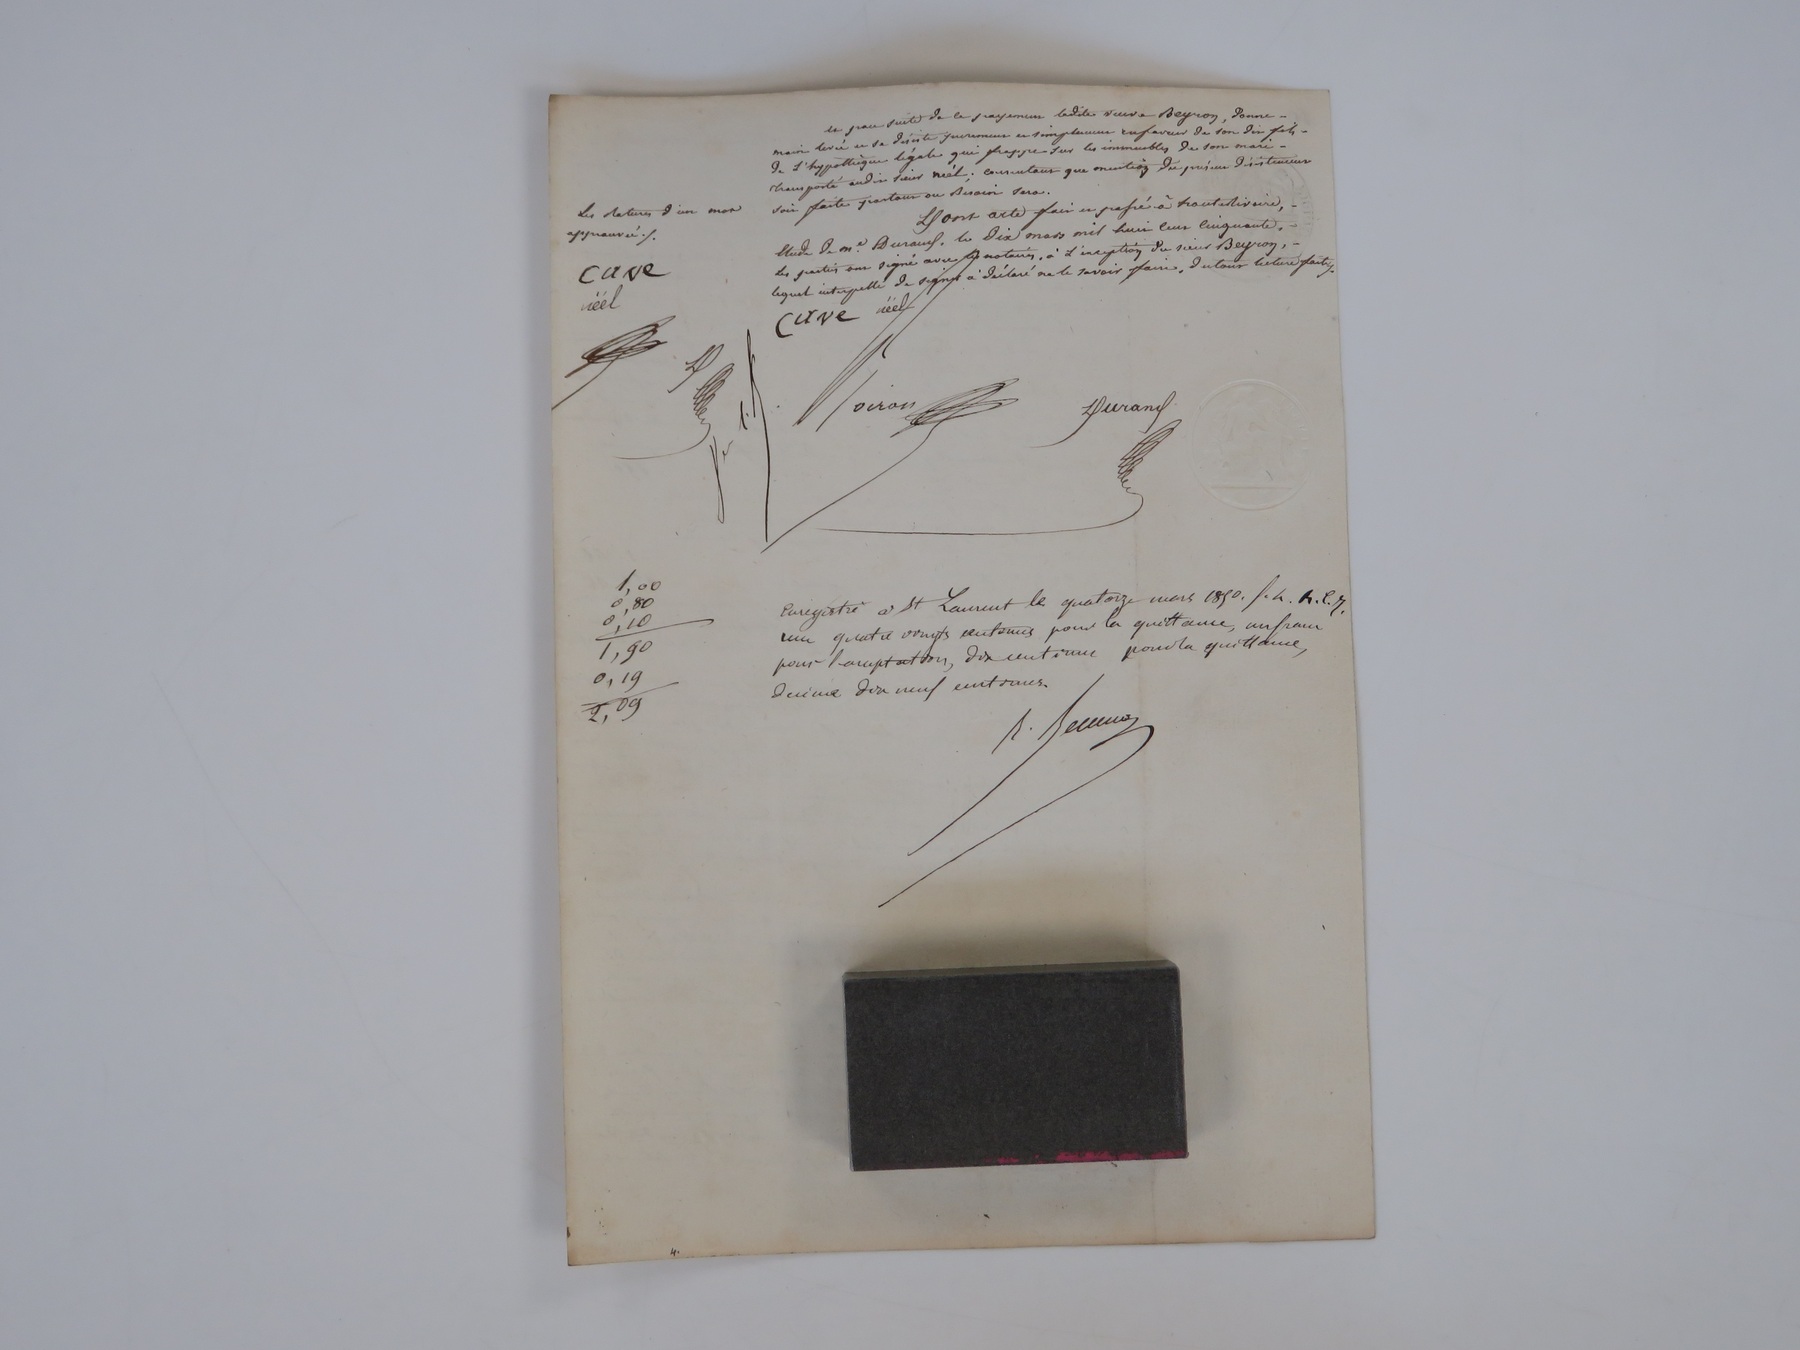 et pour suite de ce payement ladite veuve Beyron, Donne-
main levée et se désiste purement et simplement en faveur de son dit fils-
de l'hypothèque légale qui frappe sur les immeubles de son mari-
transporté audit sieur néél; consentant que mention du présent désistement
soit faite partout où besoin sera.
Les ratures d'un mot
approuvé ./.
Dont acte fait et passé à hauterivoire,-
étude de me Durand, le Dix mars mil huit cent cinquante,-
Les parties ont signé avec les notaires, à l'exception du sieur Beyron,-
lequel interpellé de signer a déclaré ne le savoir faire, du tout lecture faite.
Cave
néél
Cave néél
D
Voiron
Durand
1,00
0,80
0,10
1,90
0,19
2,09
Enregistré à St Laurent le quatorze mars 1850. f.
reçu quatre vingts centimes pour la quittance, un franc
pour l'acceptation, dix centimes pour la quittance,
décime dix neuf centimes.
4.